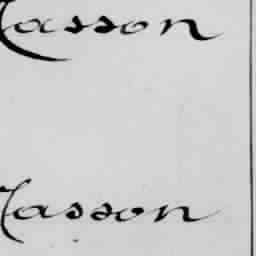 Casson
Casson